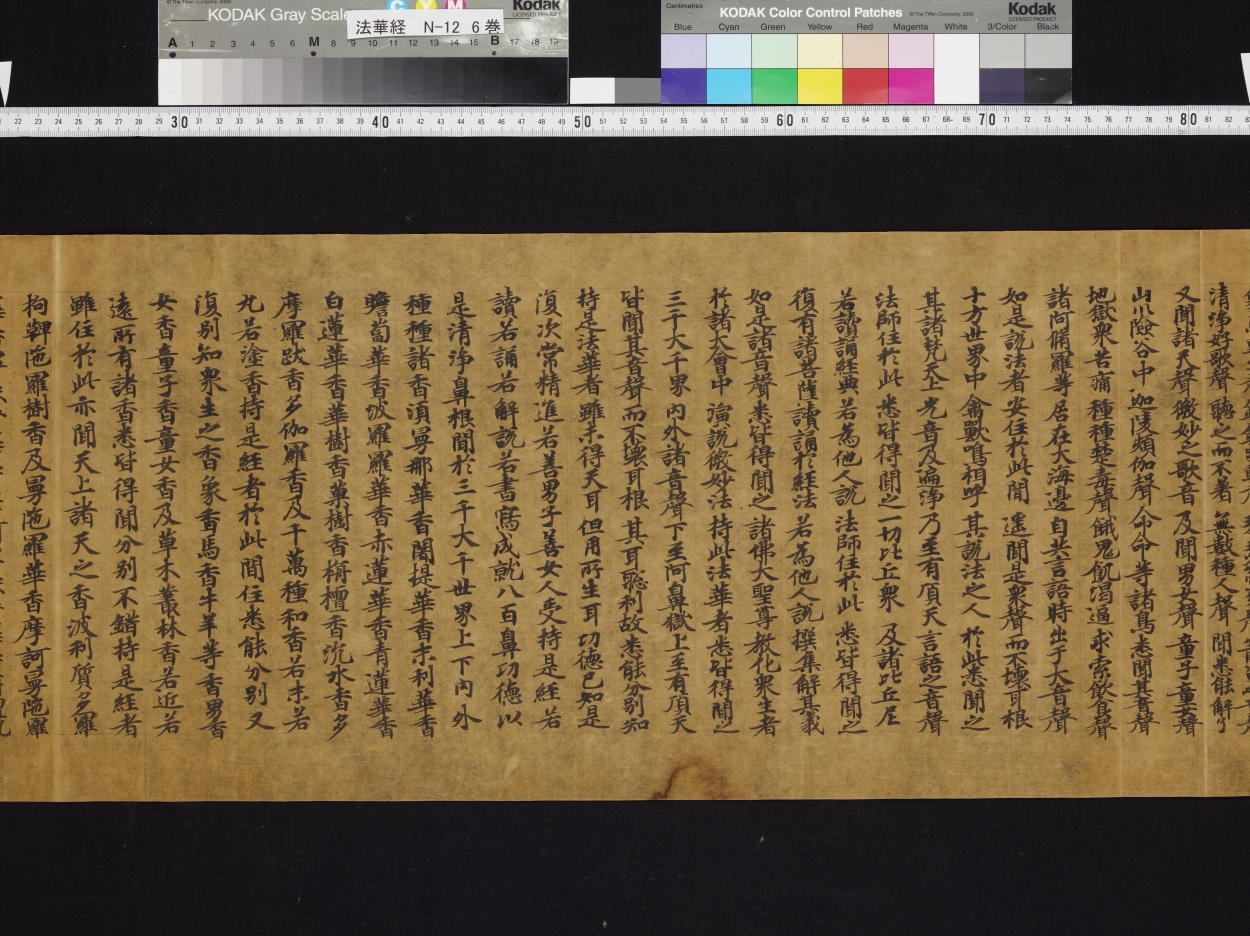 KODAK Gray Scale
法華経 N-12 6巻
Kodak
LICENSED PRODUCT
© The Tiffen Company, 2000
C Y M
A 1 2 3 4 5 6 M 8 9 10 11 12 13 14 15 B 17 18 19
Centimetres
KODAK Color Control Patches
© The Tiffen Company, 2000
Kodak
LICENSED PRODUCT
Blue Cyan Green Yellow Red Magenta White 3/Color Black
22 23 24 25 26 27 28 29 30 31 32 33 34 35 36 37 38 39 40 41 42 43 44 45 46 47 48 49 50 51 52 53 54 55 56 57 58 59 60 61 62 63 64 65 66 67 68 69 70 71 72 73 74 75 76 77 78 79 80 81 82
清淨好歌聲 聽之而不著 無數種人聲 聞悉能解了
又聞諸天聲 微妙之歌音 及聞男女聲 童子童女聲
山川險谷中 迦陵頻伽聲 命命等諸鳥 悉聞其音聲
地獄衆苦痛 種種楚毒聲 餓鬼飢渴逼 求索飲食聲
諸阿脩羅等 居在大海邊 自共言語時 出于大音聲
如是說法者 安住於此間 遙聞是衆聲 而不壞耳根
十方世界中 禽獸鳴相呼 其說法之人 於此悉聞之
其諸梵天上 光音及遍淨 乃至有頂天 言語之音聲
法師住於此 悉皆得聞之 一切比丘衆 及諸比丘尼
若讀誦經典 若為他人說 法師住於此 悉皆得聞之
復有諸菩薩 讀誦於經法 若為他人說 撰集解其義
如是諸音聲 悉皆得聞之 諸佛大聖尊 教化衆生者
於諸大會中 演說微妙法 持此法華者 悉皆得聞之
三千大千界 內外諸音聲 下至阿鼻獄 上至有頂天
皆聞其音聲 而不壞耳根 其耳聰利故 悉能分別知
持是法華者 雖未得天耳 但用所生耳 功德已如是
復次常精進若善男子善女人受持是經若
讀若誦若解說若書寫成就八百鼻功德以
是清淨鼻根聞於三千大千世界上下內外
種種諸香須曼那華香闍提華香末利華香
瞻蔔華香波羅羅華香赤蓮華香青蓮華香
白蓮華香華樹香菓樹香栴檀香沉水香多
摩羅跋香多伽羅香及千萬種和香若末若
丸若塗香持是經者於此間住悉能分別又
復別知衆生之香象香馬香牛羊等香男香
女香童子香童女香及草木叢林香若近若
遠所有諸香悉皆得聞分別不錯持是經者
雖住於此亦聞天上諸天之香波利質多羅
拘鞞陁羅樹香及曼陁羅華香摩訶曼陁羅